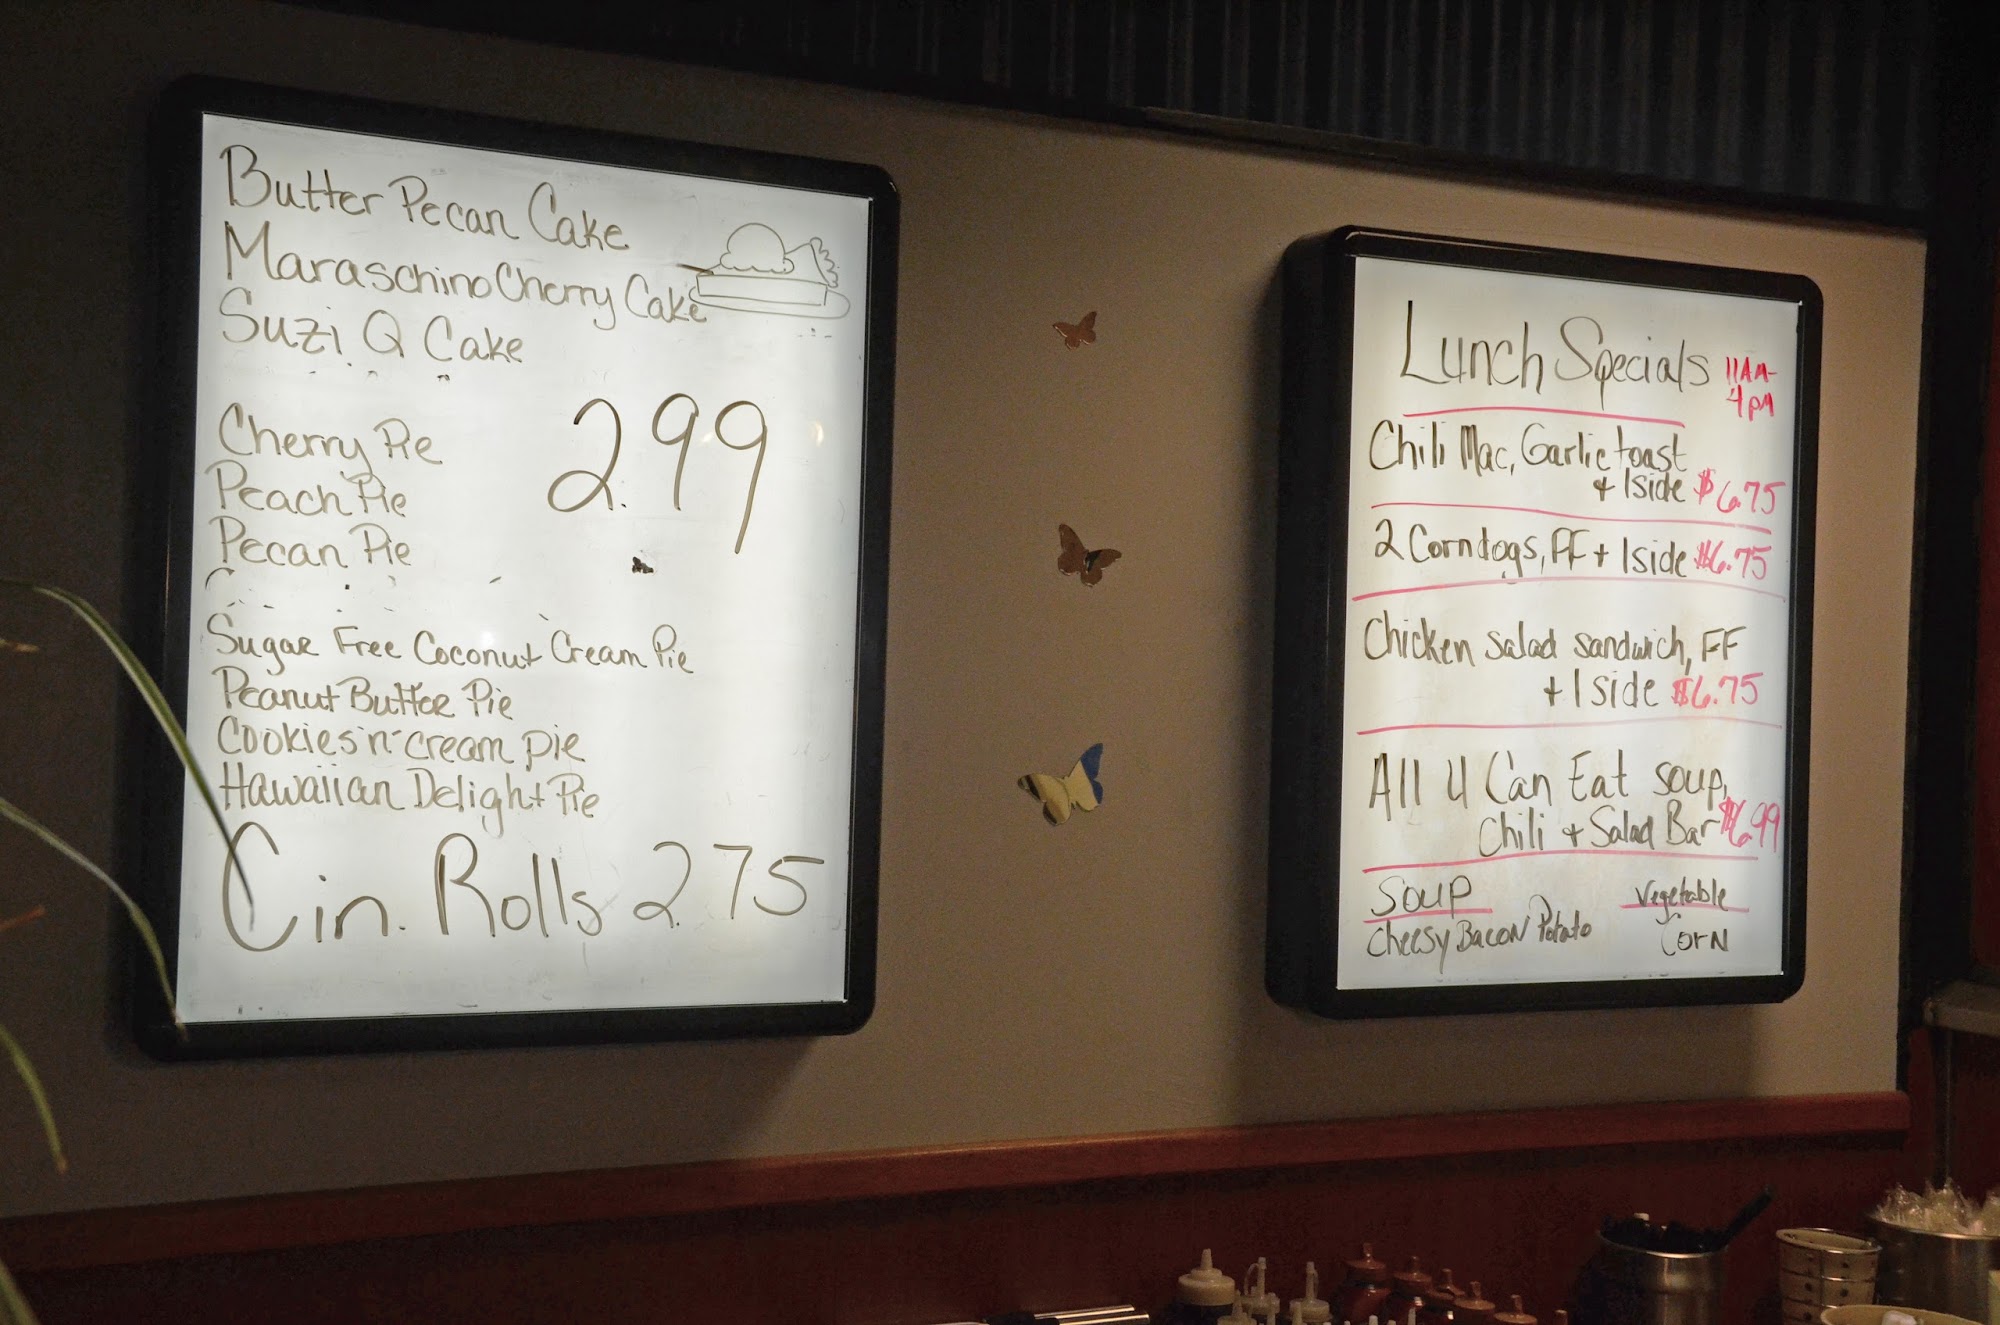 Butter Pecan Cake
Maraschino Cherry Cake
Suzi Q Cake
Cherry Pie
2.99
Peach Pie
Pecan Pie
Sugar Free Coconut Cream Pie
Peanut Butter Pie
Cookies'n'cream pie
Hawaiian Delight Pie
Cin. Rolls 2.75
Lunch Specials 11AM-
4PM
Chili Mac, Garlic toast
+ 1side $6.75
2 Corndogs, FF + 1side $6.75
Chicken salad sandwich, FF
+ 1 side $6.75
All 4 Can Eat soup,
Chili + Salad Bar $6.99
Soup Vegetable
Cheesy Bacon Potato Corn